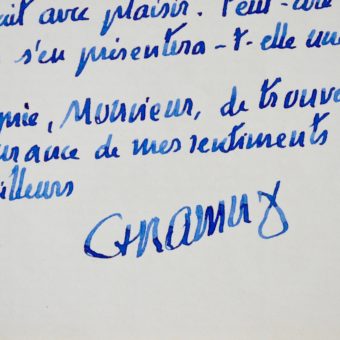 ait avec plaisir. Peut-être
s'en présentera-t-elle une
prie, Monsieur, de trouve
urance de mes sentiments
illeurs
CFRamuz